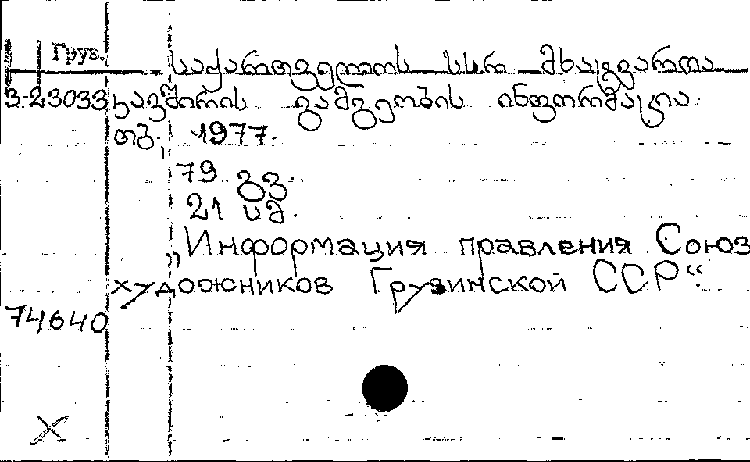 Груз.
საქართველოს სსრ მხატვართა
3-23033 კავშირის გამგეობის ინფორმაცია.
თბ., 1977.
79 გვ.
21 სმ.
„Информация правления Союз
художников Грузинской ССР“.
74640
X